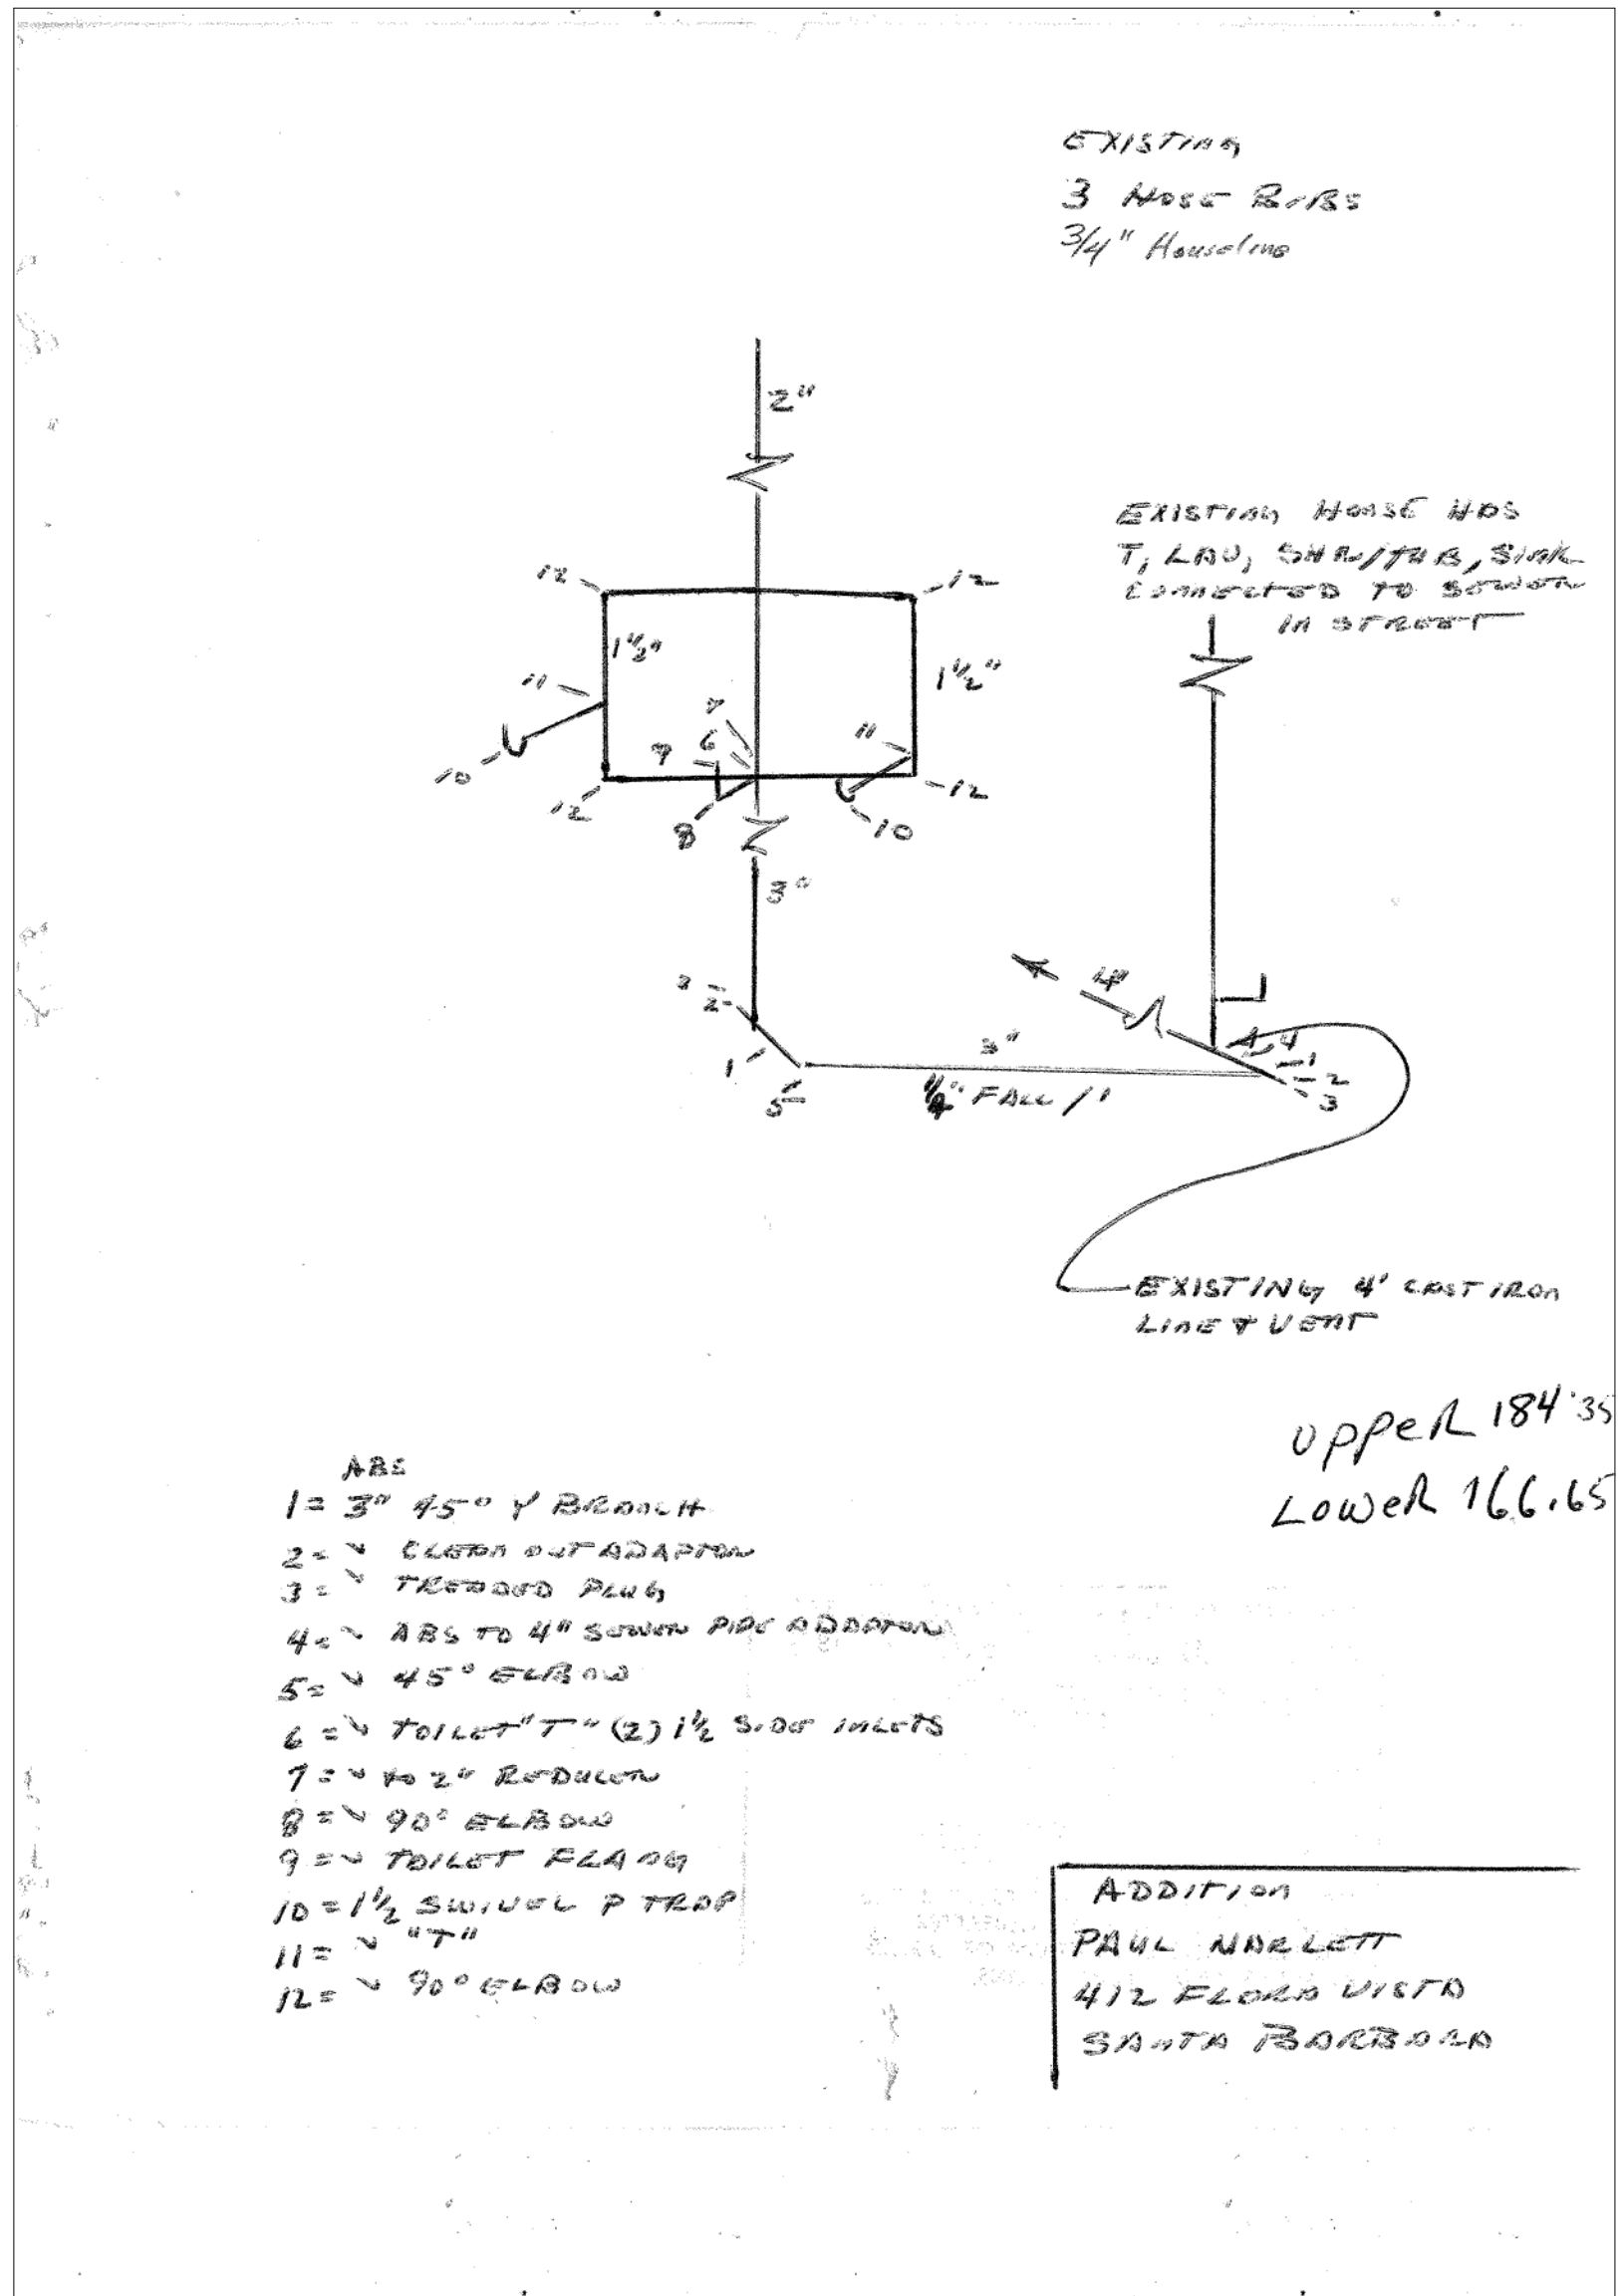 EXISTING
3 HOSE BIBS
3/4" Houseline
2"
EXISTING HOUSE HAS
T, LAV, SHR/TUB, SINK
CONNECTED TO SEWER
IN STREET
12
12
1 1/2"
1 1/2"
11
7
6
9
11
10
12
12
8
10
3"
3
2
4"
1
3"
4
1
2
3
5
1/4" FALL / '
EXISTING 4' CAST IRON
LINE & VENT
UPPER 184.35
LOWER 166.65
ABS
1 = 3" 45° Y BRANCH
2 = " CLEAN OUT ADAPTER
3 = " PLUG
4 = " ABS TO 4" SEWER PIPE ADAPTER
5 = " 45° ELBOW
6 = " TOILET "T" (2) 1 1/2 SIDE INLETS
7 = " to 2" REDUCER
8 = " 90° ELBOW
9 = " TOILET FLANG
10 = 1 1/2 SWIVEL P TRAP
11 = " "T"
12 = " 90° ELBOW
ADDITION
PAUL
412 FLORA VISTA
SANTA BARBARA